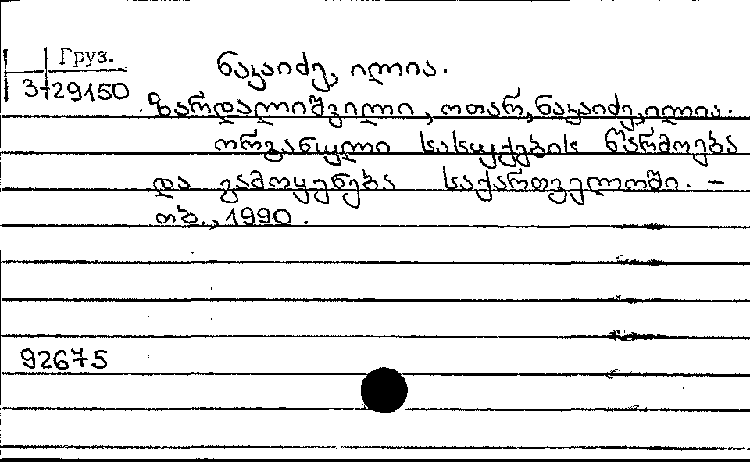 Груз.
3-29150
ნაკაიძე, ილია.
ზარდალიშვილი, ოთარ, ნაკაიძე, ილია.
ორგანული სასუქების წარმოება
და გამოყენება საქართველოში. -
თბ., 1990.
92675